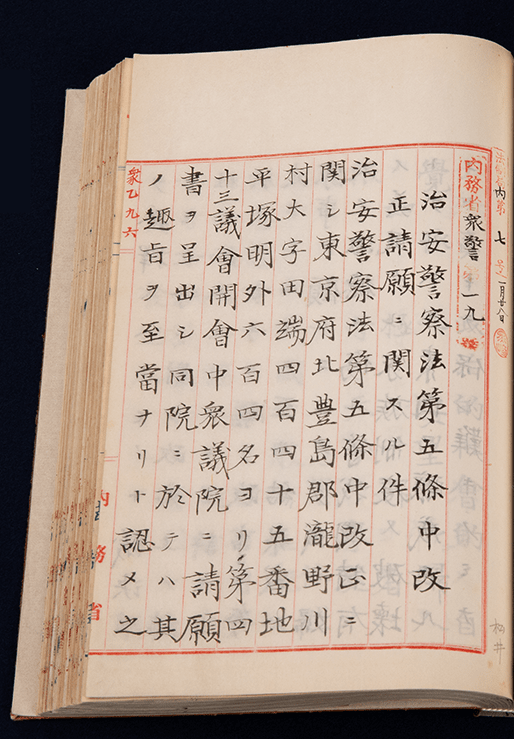 内第七号一月廿八日
内務省衆警第一九號
治安警察法第五條中改
正請願ニ関スル件
治安警察法第五條中改正ニ
関シ東京府北豊島郡瀧野川
村大字田端四百四十五番地
平塚明外六百四名ヨリ第四
十三議會開會中衆議院ニ請願
書ヲ呈出シ同院ニ於テハ其
ノ趣旨ヲ至當ナリト認メ之
衆乙九六
内務省